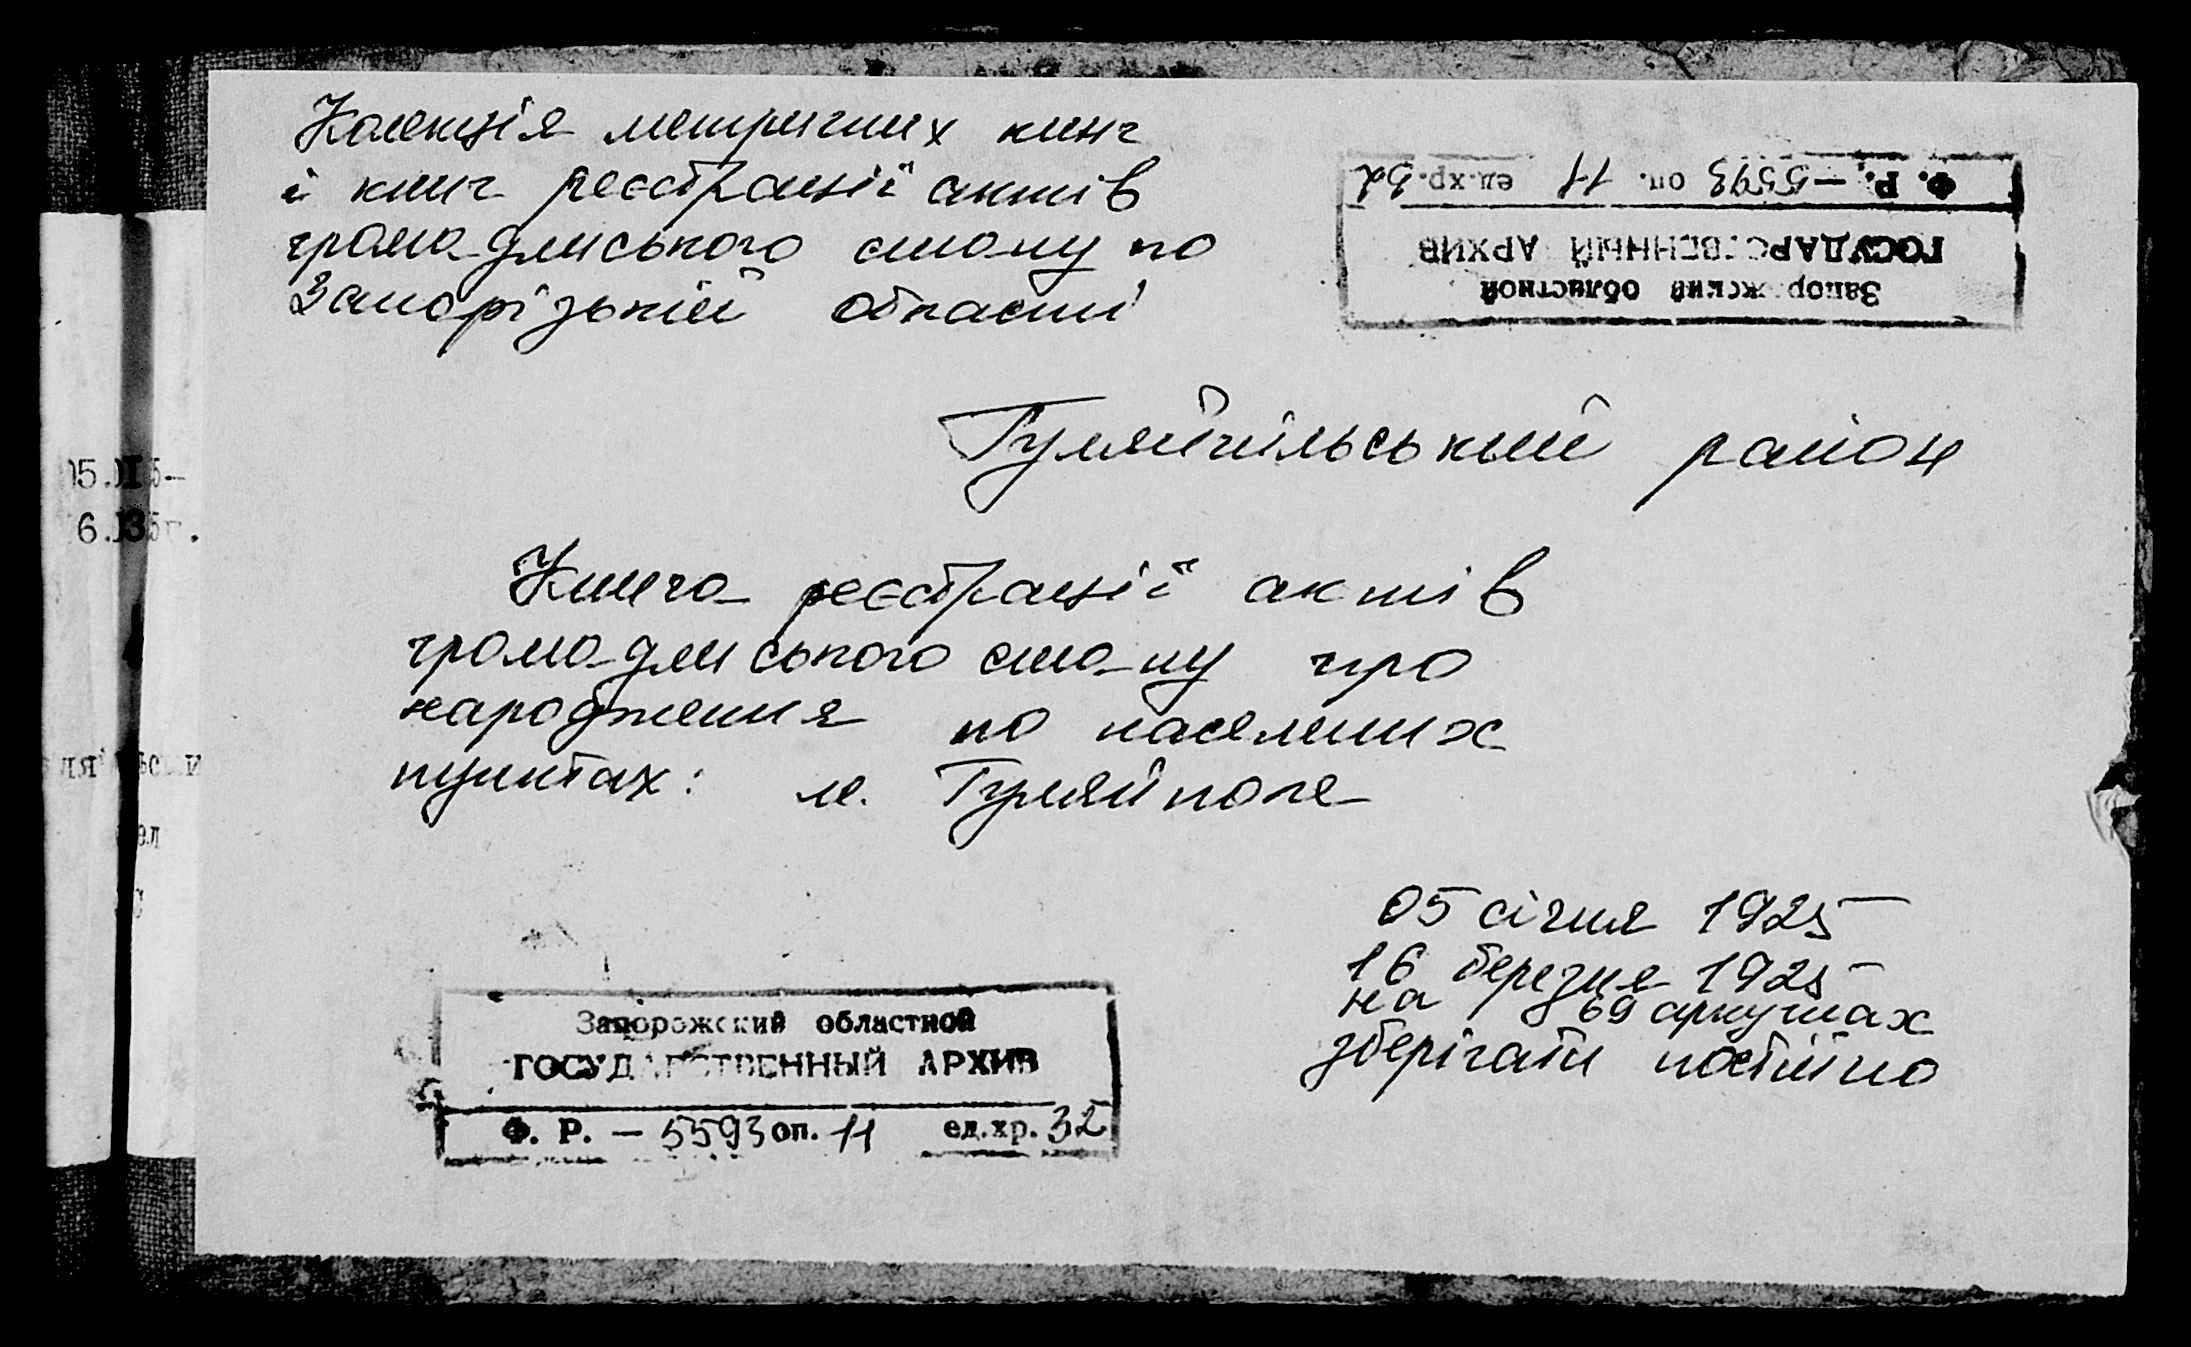 Колекція метричних книг
і книг реєстрації актів
громадянського стану по
Запорізькій області
Ф. Р. — 5593 оп. 11 ед.хр. 32
ГОСУДАРСТВЕННЫЙ АРХИВ
Запорожский областной
Гуляйпільський район
Книга реєстрації актів
громадянського стану про
народження по населених
пунктах: м. Гуляйполе
05 січня 1925
16 березня 1925
на 69 аркушах
зберігати постійно
Запорожский областной
ГОСУДАРСТВЕННЫЙ АРХИВ
Ф. Р. — 5593 оп. 11 ед.хр. 32